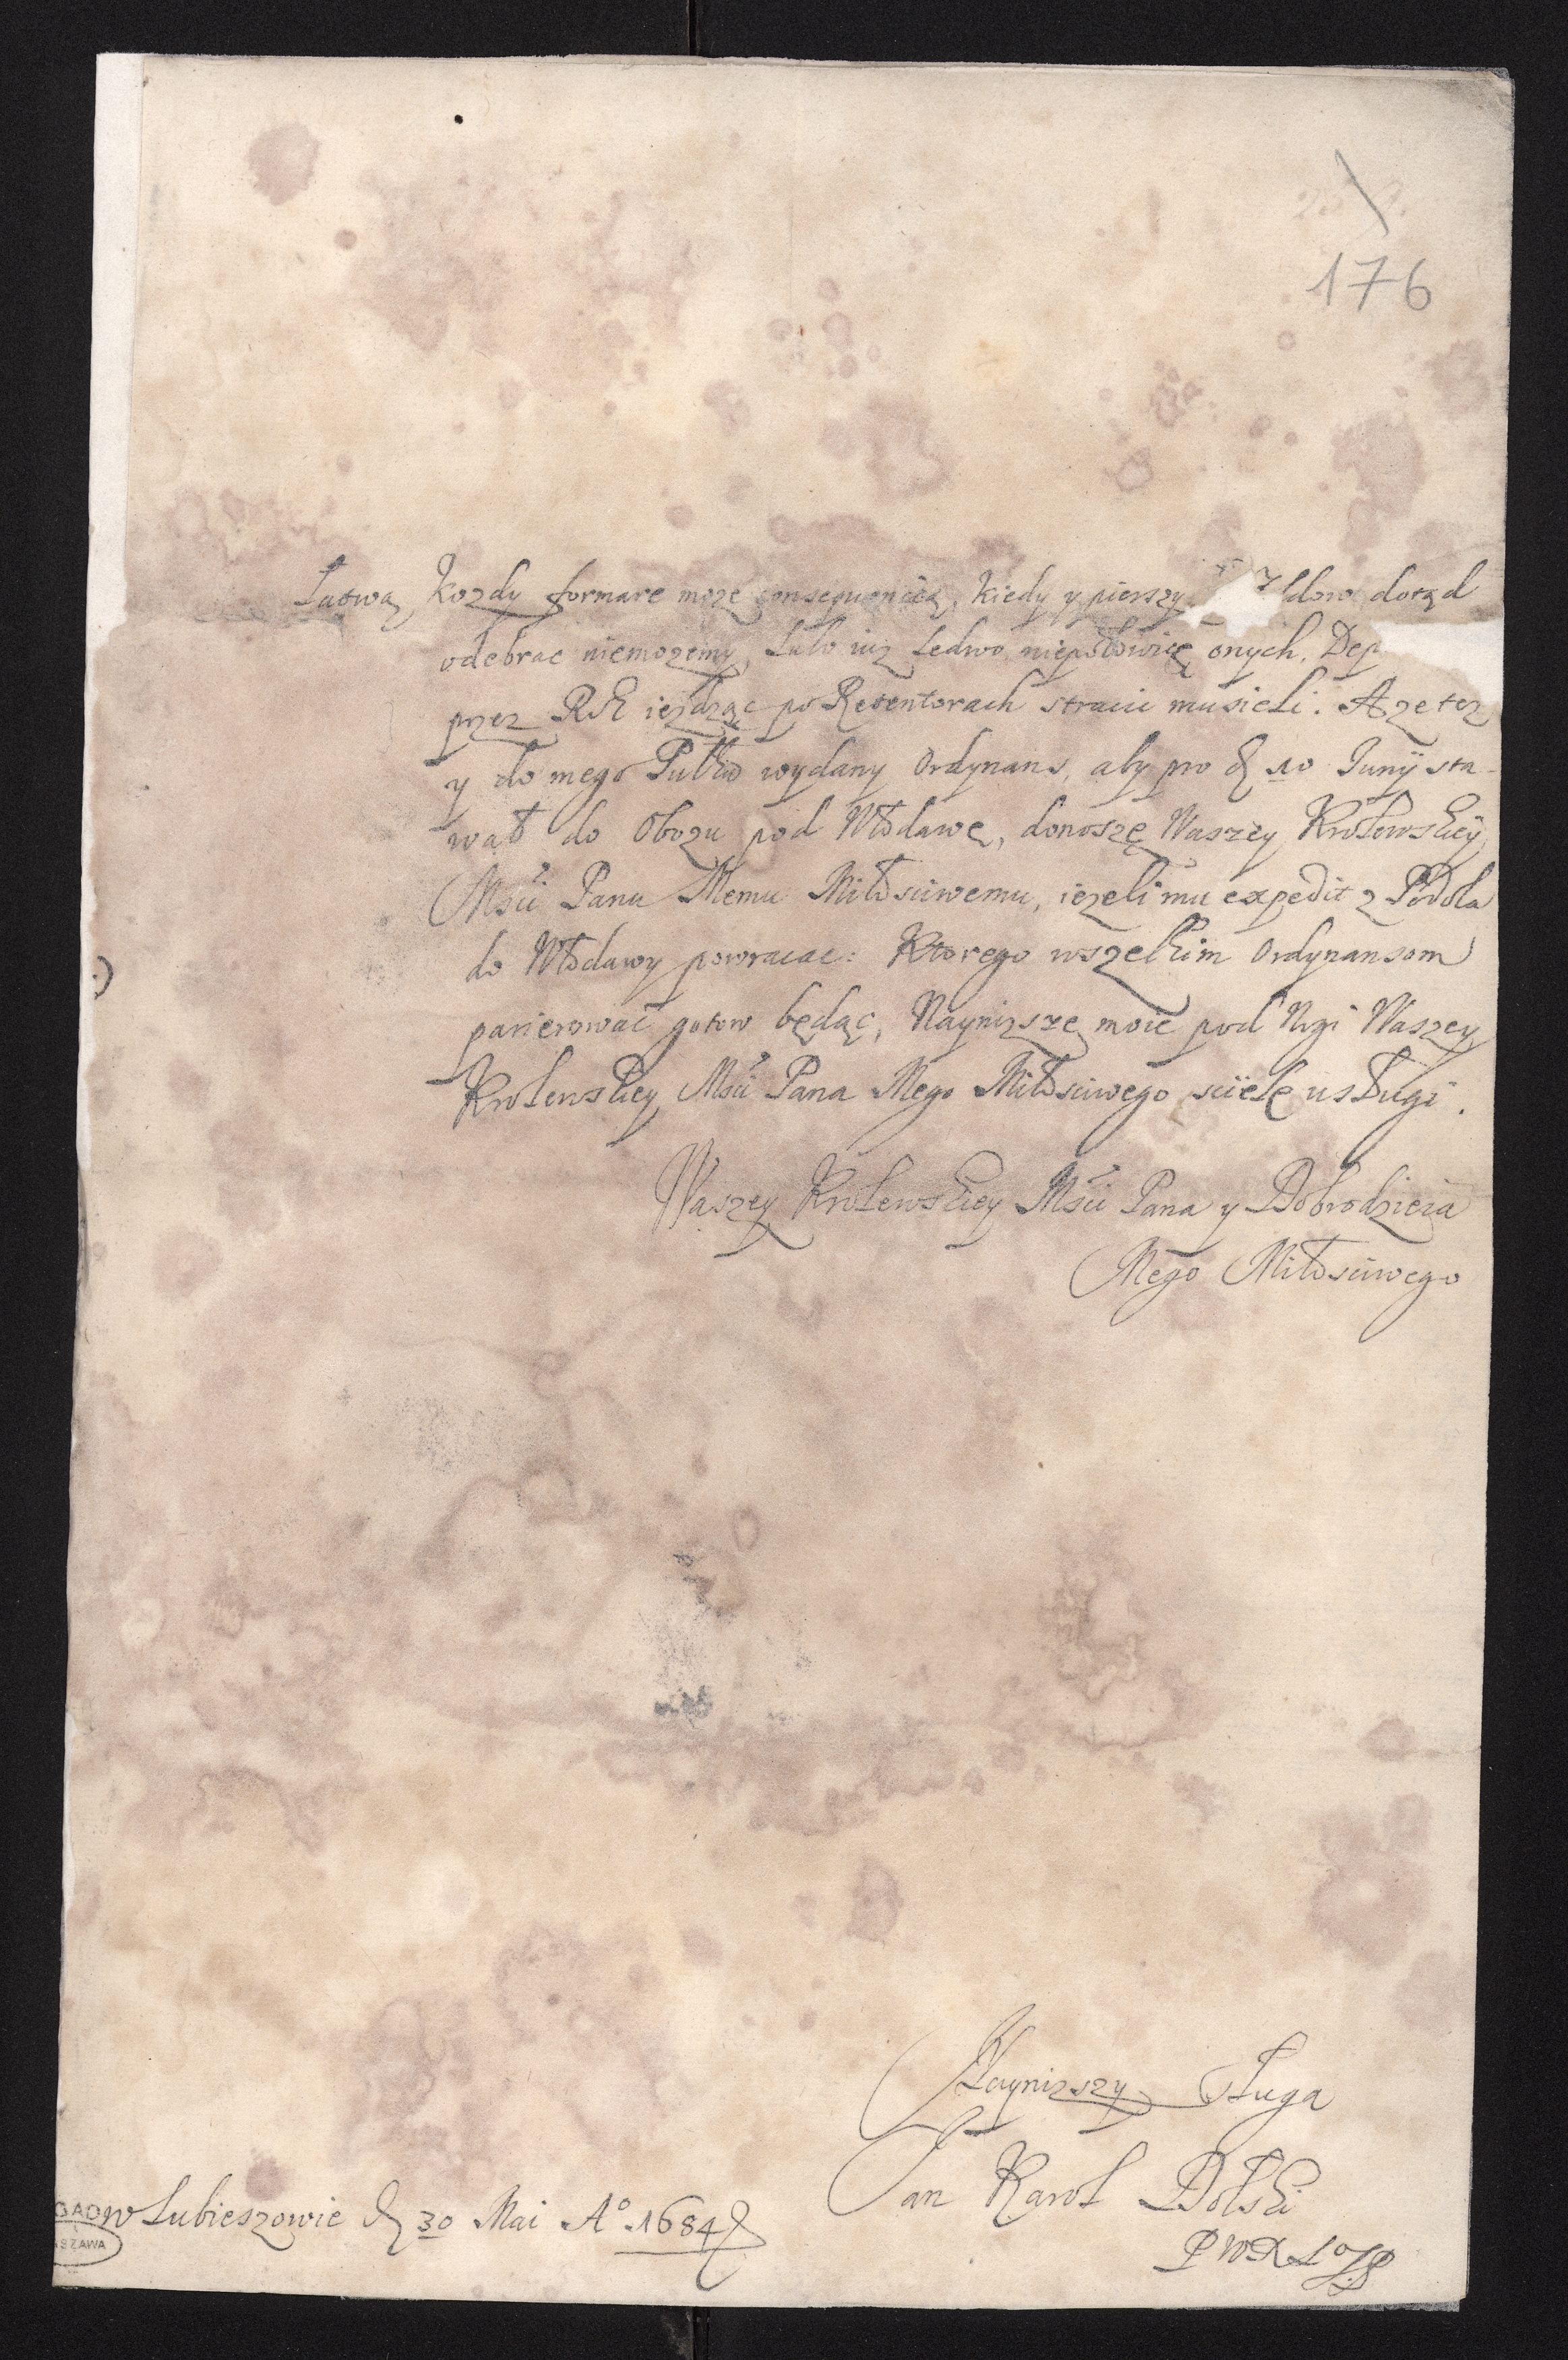 176
Łatwą kozdy formare moze consequencią, kiedy y pierszy dotąd
odebrac niemozemy, Lubo iuz Ledwo niepołowicę onych. Dep
przez RK iezdząc po Retentorach stracic musieli. A ze tez
y do mego Pułku wydany Ordynans, aby pro d 10 Junÿ sta-
wał do Obozu pod Włodawę, donoszę Waszey Krolewskiey
Msći Panu Memu Miłosciwemu, iezeli mu expedit z Podola
do Włodawy powracac: Ktorego wszelkim Ordynansom
parierować gotow będąc, Naynizsze moie pod Nogi Waszey
Krolewskiey Msći Pana Mego Miłosciwego scielę usługi.
Waszey Krolewskiey Msći Pana y Dobrodzieia
Mego Miłosciwego
Naynizszy Sługa
Jan Karol Dolski
w Lubieszowie d 30 Mai A° 1684